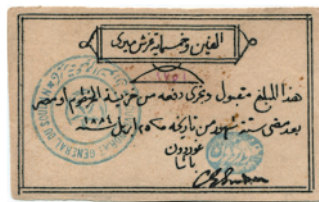 الفين وخمسماية غرش ميرى
هذا المبلغ مقبول وتجرى دفعه من خزينة الخرطوم او مصر
بعد مضى ستة شهور من تاريخه ٢٥ ابريل ١٨٨٤ سنه
غوردون
باشا
GENERAL DU SOUDAN